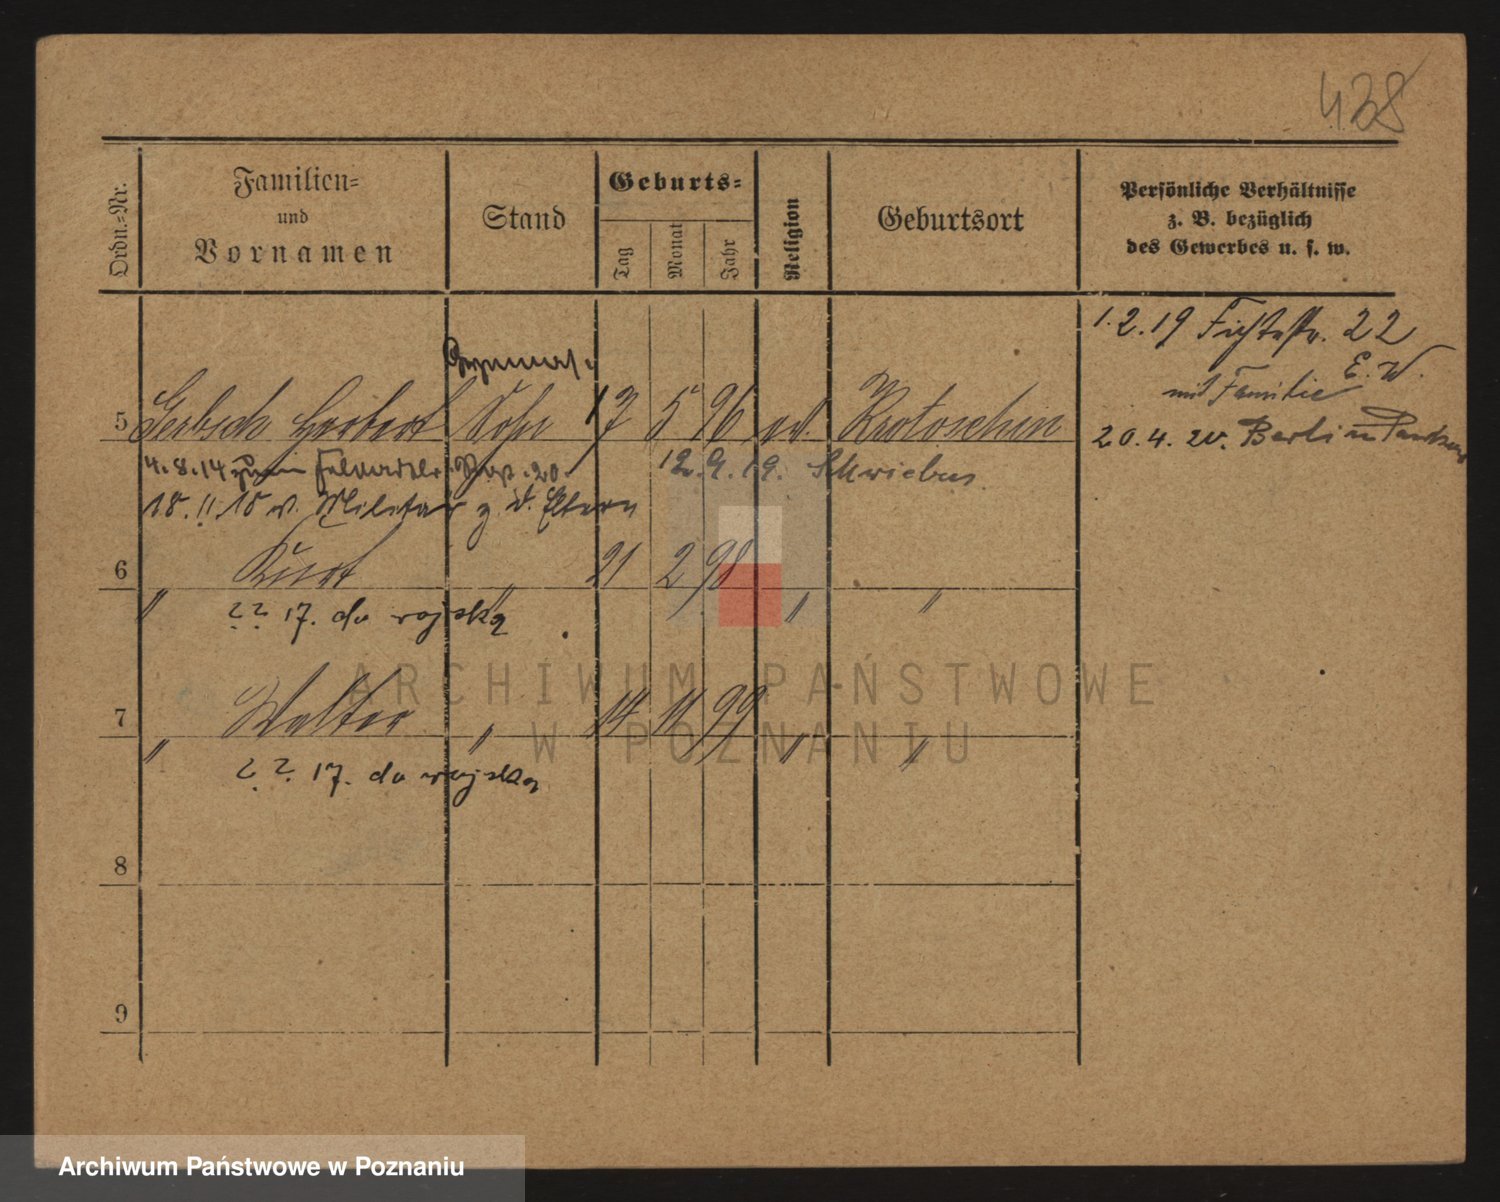 438
Ordn.=Nr.
Familien=
und
Vornamen
Stand
Geburts=
Tag
Monat
Jahr
Religion
Geburtsort
Persönliche Verhältnisse
z. B. bezüglich
des Gewerbes u. s. w.
1.2.19 Fichtestr. 22
E. W.
mit Familie
20.4. Berlin
5 Gerbsch Herbert Sohn 17 5 96 ev. Krotoschin
4.8.14 zum 20. 12.9.19. Schwiebus
18.11.18 v. Militär z. d. Eltern
6 Kurt 21 2 98
" " " "
? ? 17. do wojska
7 Walter 14 11 99
" " " "
? ? 17. do wojska
8
9
ARCHIWUM PAŃSTWOWE
W POZNANIU
Archiwum Państwowe w Poznaniu